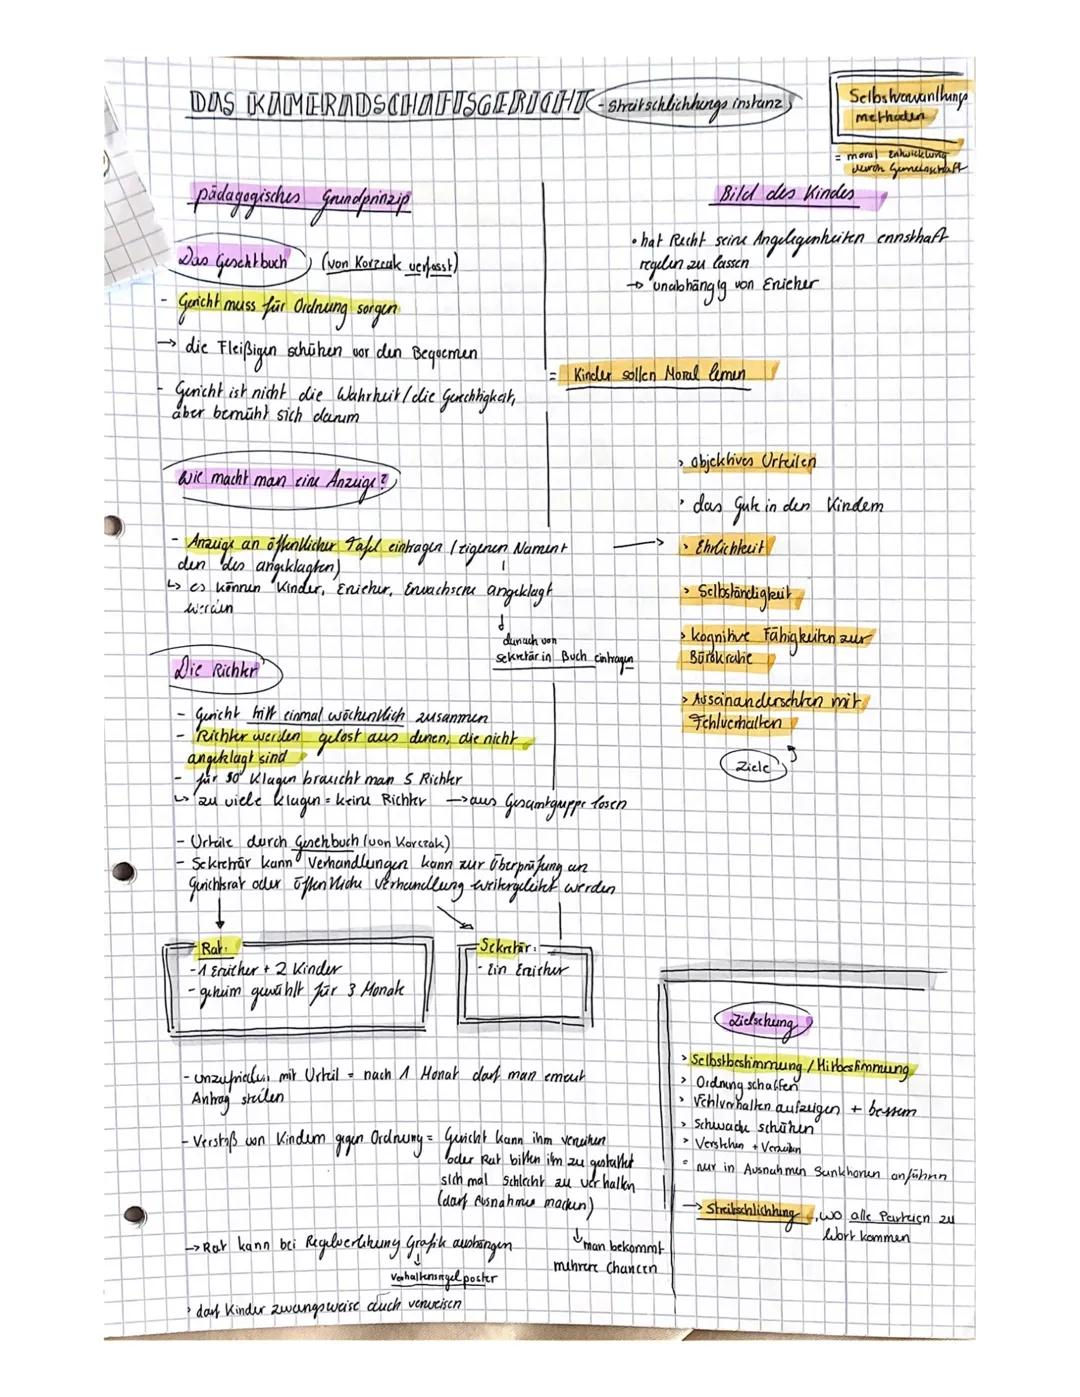 DAS KAMERADSCHAFTSGERICHT - Streitschlichtungsinstanz
Selbstverwaltungs
methoden
= moral Entwicklung
durch Gemeinschaft
pädagogisches Grundprinzip
Das Gesetzbuch (von Korzcak verfasst)
- Gericht muss für Ordnung sorgen
→ die Fleißigen schützen vor den Bequemen
- Gericht ist nicht die Wahrheit/die Gerechtigkeit,
aber bemüht sich darum
Wie macht man eine Anzeige?
- Anzeige an öffentlicher Tafel eintragen (eigenen Namen +
den des angeklagten)
↳ es können Kinder, Erzieher, Erwachsene angeklagt
werden
↓
danach von
Sekretär in Buch eintragen
Die Richter
- Gericht tritt einmal wöchentlich zusammen
- Richter werden gelost aus denen, die nicht
angeklagt sind
- für 50 Klagen braucht man 5 Richter
↳ zu viele Klagen = keine Richter → aus Gesamtgruppe losen
- Urteile durch Gesetzbuch (von Korczak)
- Sekretär kann Verhandlungen kann zur Überprüfung an
Gerichtsrat oder öffentliche Verhandlung weitergeleitet werden
Rat:
- 1 Erzieher + 2 Kinder
- geheim gewählt für 3 Monate
Sekretär:
- Ein Erzieher
- unzufrieden mit Urteil = nach 1 Monat darf man erneut
Antrag stellen
- Verstoß von Kindern gegen Ordnung = Gericht kann ihm verzeihen
oder Rat bitten ihm zu gestattet
sich mal schlecht zu verhalten
(darf Ausnahme machen)
↓ man bekommt
mehrere Chancen
→ Rat kann bei Regelverletzung Grafik aushängen
↓
Verhaltensregelposter
› darf Kinder zwangsweise auch verweisen
Bild des Kindes
• hat Recht seine Angelegenheiten ernsthaft
regeln zu lassen
→ unabhängig von Erzieher
= Kinder sollen Moral lernen
› objektives Urteilen
› das Gute in den Kindern
→ › Ehrlichkeit
› Selbständigkeit
› kognitive Fähigkeiten zur
Bürokratie
› Auseinandersetzen mit
Fehlverhalten
Ziele
Zielsetzung
› Selbstbestimmung / Mitbestimmung
› Ordnung schaffen
› Fehlverhalten aufzeigen + bessern
› Schwache schützen
› Verstehen + Verzeihen
= nur in Ausnahmen Sanktionen anführen
→ Streitschlichtung, wo alle Parteien zu
Wort kommen